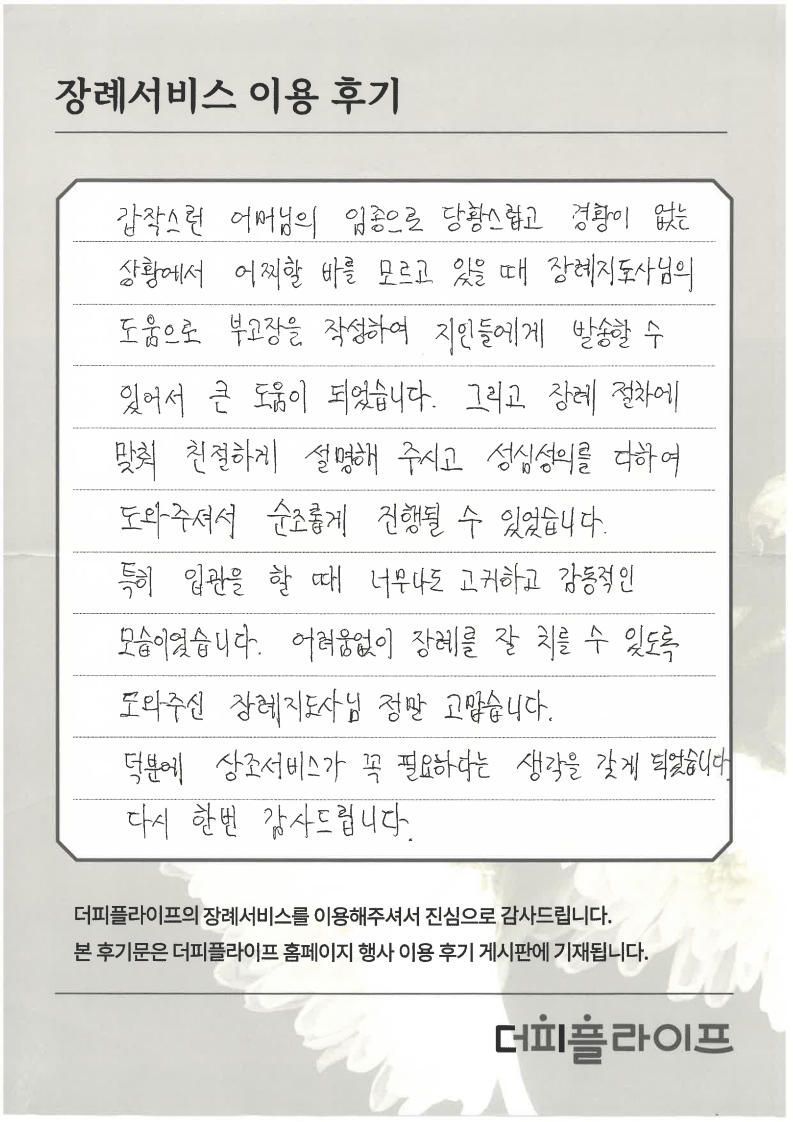 장례서비스 이용 후기
갑작스런 어머님의 임종으로 당황스럽고 경황이 없는
상황에서 어찌할 바를 모르고 있을 때 장례지도사님의
도움으로 부고장을 작성하여 지인들에게 발송할 수
있어서 큰 도움이 되었습니다. 그리고 장례 절차에
맞춰 친절하게 설명해 주시고 성심성의를 다하여
도와주셔서 순조롭게 진행될 수 있었습니다.
특히 입관을 할 때 너무나도 고귀하고 감동적인
모습이였습니다. 어려움없이 장례를 잘 치를 수 있도록
도와주신 장례지도사님 정말 고맙습니다.
덕분에 상조서비스가 꼭 필요하다는 생각을 갖게 되었습니다.
다시 한번 감사드립니다.
더피플라이프의 장례서비스를 이용해주셔서 진심으로 감사드립니다.
본 후기문은 더피플라이프 홈페이지 행사 이용 후기 게시판에 기재됩니다.
더피플라이프